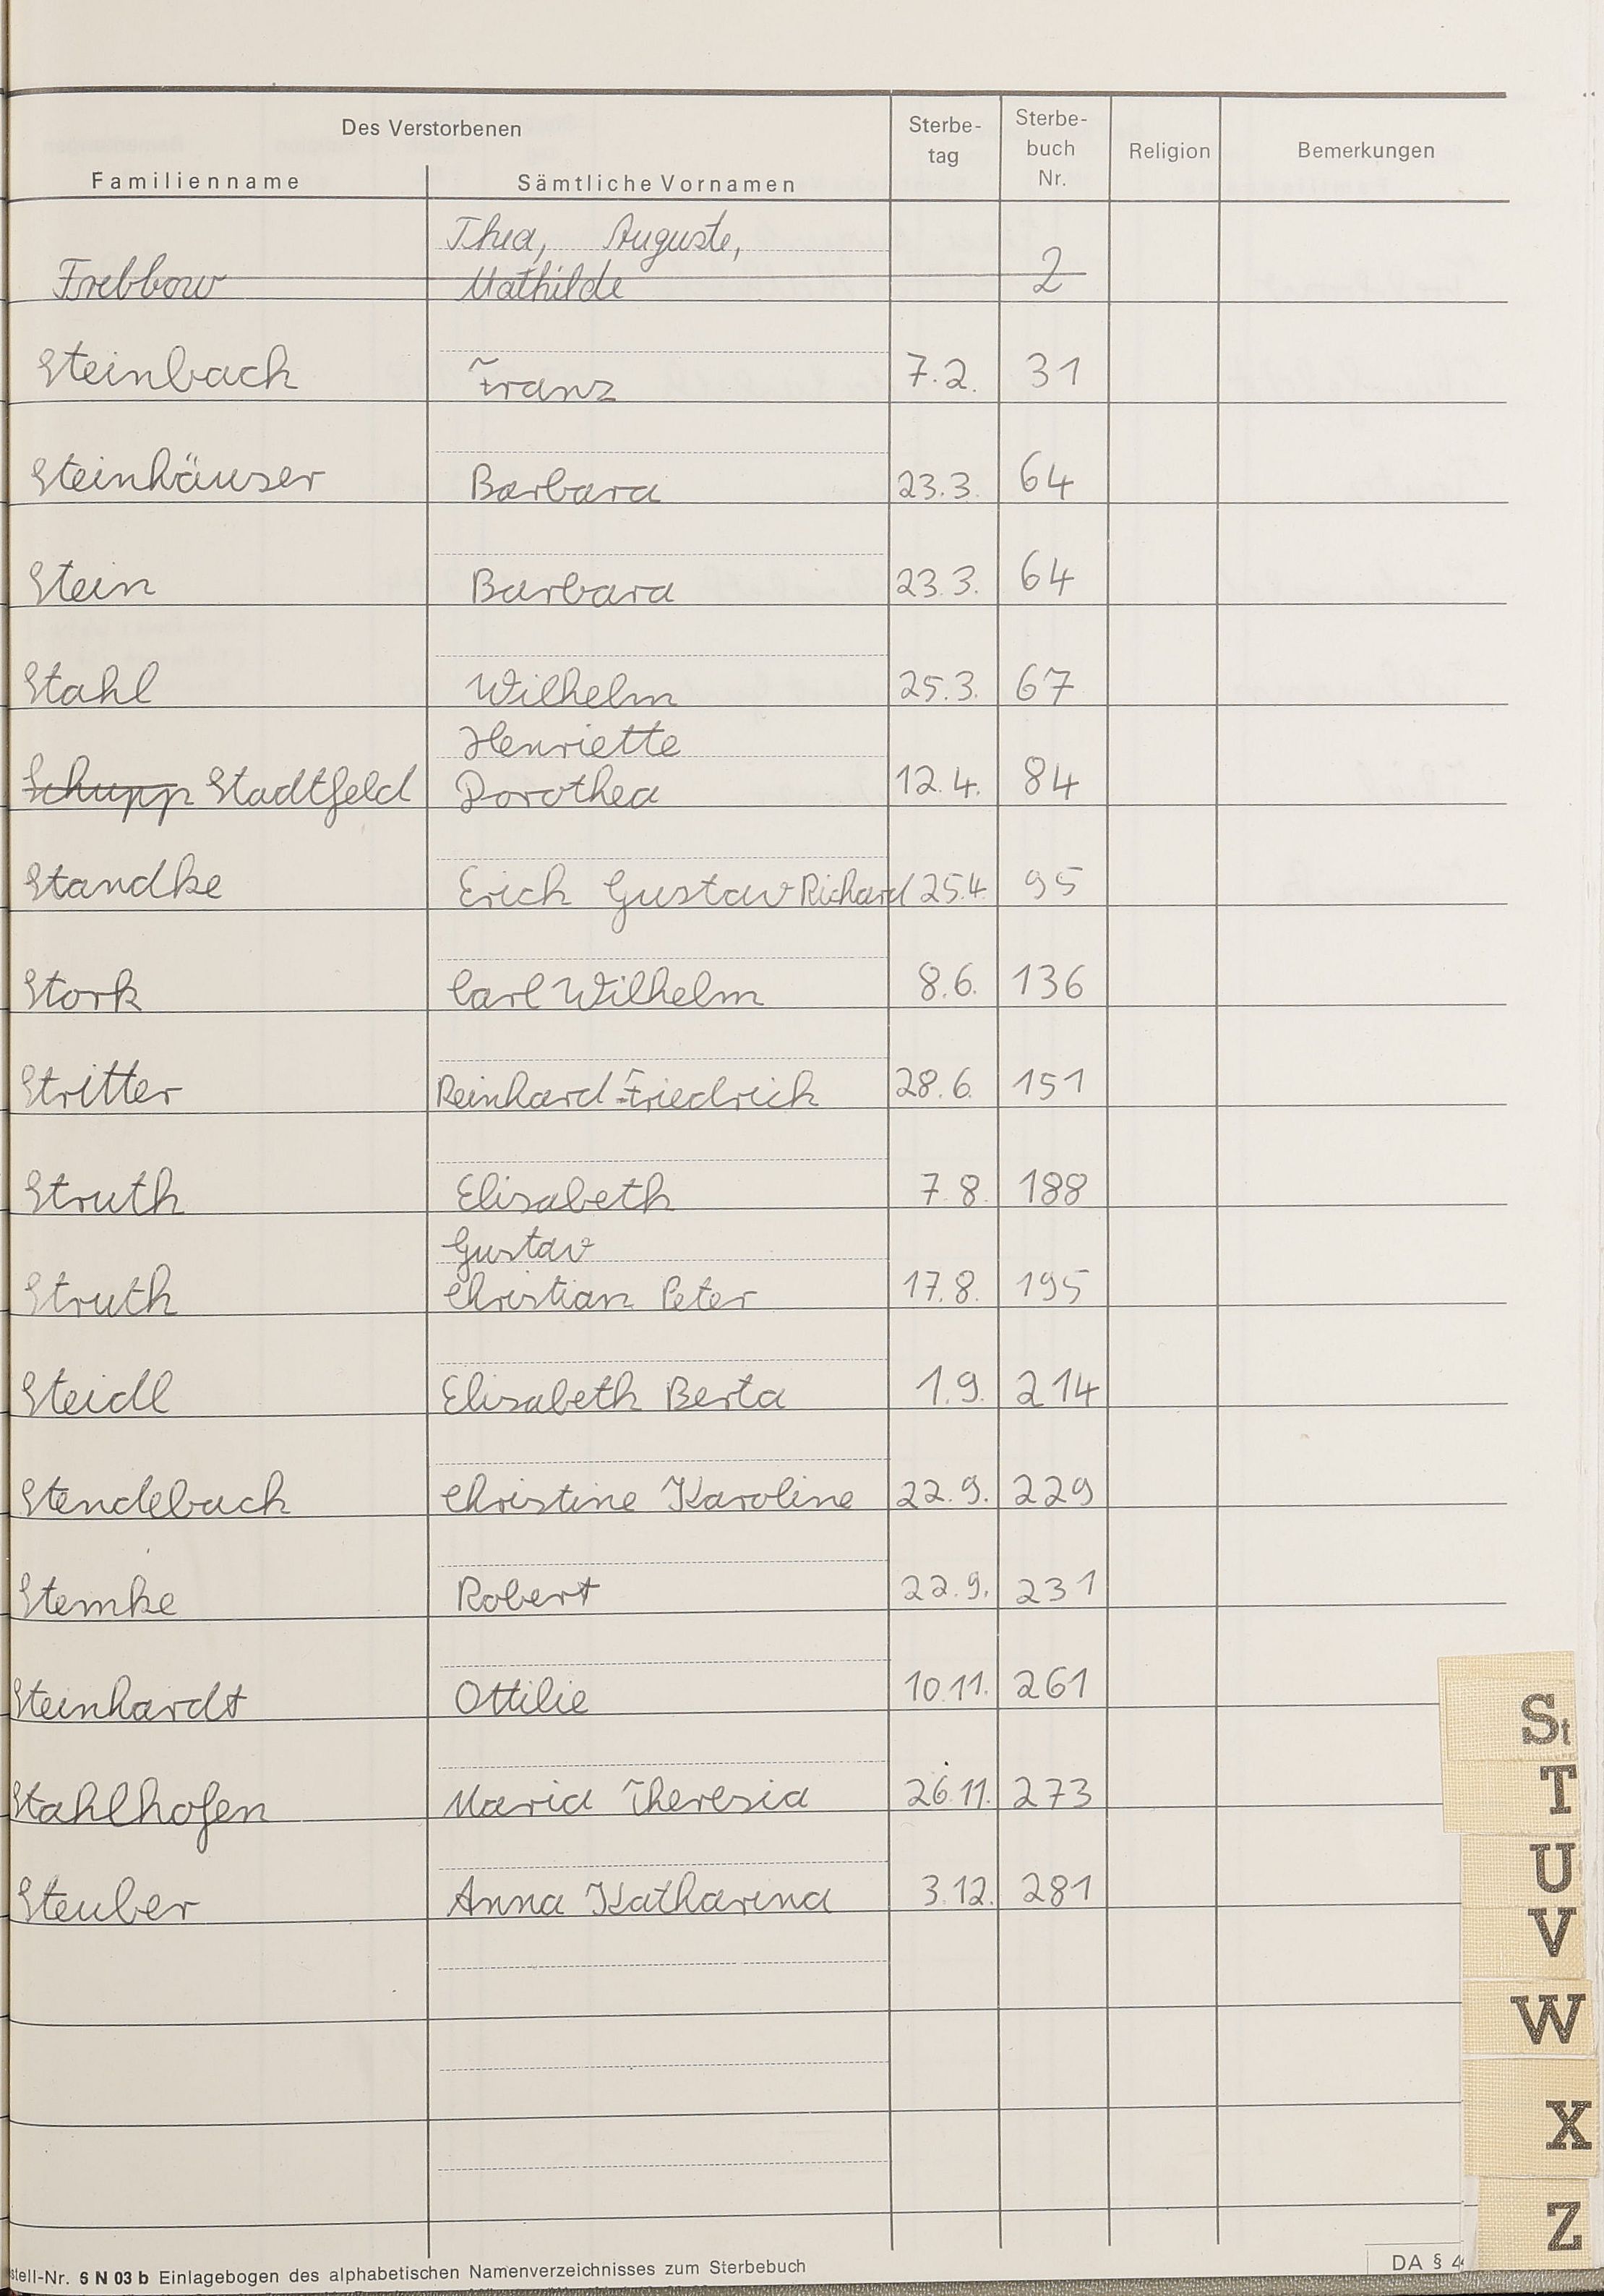 Des Verstorbenen
Sterbe-
tag
Sterbe-
buch
Nr.
Religion
Bemerkungen
Familienname
Sämtliche Vornamen
Thea, Auguste,
Mathilde 2
Steinbach Franz 7.2. 31
Steinhäuser Barbara 23.3. 64
Stein Barbara 23.3. 64
Stahl Wilhelm 25.3. 67
Henriette
Schupp Stadtfeld Dorothea 12.4. 84
Standke Erich Gustav Richard 25.4. 95
Stork Carl Wilhelm 8.6. 136
Stritter Reinhard Friedrich 28.6. 151
Struth Elisabeth 7.8. 188
Gustav
Struth Christian Peter 17.8. 195
Steidl Elisabeth Berta 1.9. 214
Stendebach Christine Karoline 22.9. 229
Stemke Robert 22.9. 231
Steinhardt Ottilie 10.11. 261
Stahlhofen Maria Theresia 26.11. 273
Steuber Anna Katharina 3.12. 281
St
T
U
V
W
X
Z
stell-Nr. 6 N 03 b Einlagebogen des alphabetischen Namenverzeichnisses zum Sterbebuch
DA § 4